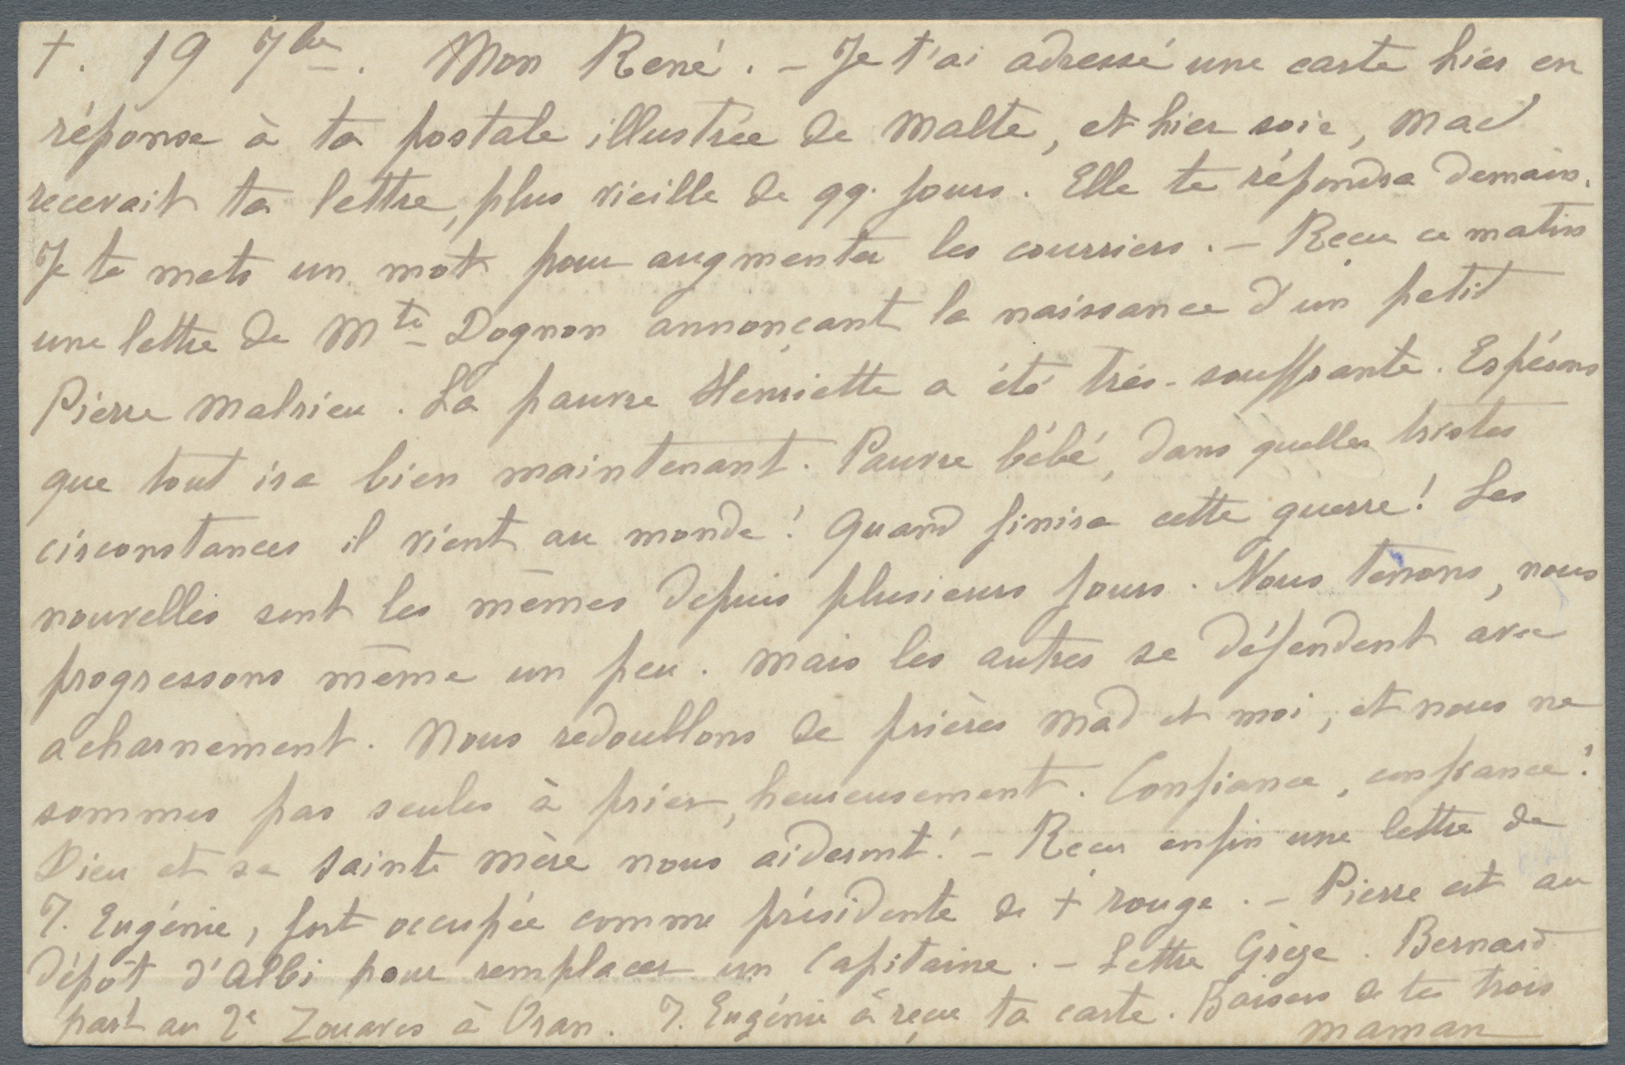 +. 19 7bre. Mon René. – Je t'ai adressé une carte hier en
réponse à ta postale illustrée de Malte, et hier soir, Mad
recevait ta lettre, plus vieille de qq. jours. Elle te répondra demain.
Je te mets un mot pour augmenter les courriers. – Reçu ce matin
une lettre de Mte Dognon annonçant la naissance d'un petit
Pierre Malrieu. La pauvre Henriette a été très-souffrante. Espérons
que tout ira bien maintenant. Pauvre bébé, dans quelles tristes
circonstances il vient au monde! Quand finira cette guerre! Les
nouvelles sont les mêmes depuis plusieurs jours. Nous tenons, nous
progressons même un peu. Mais les autres se défendent avec
acharnement. Nous redoublons de prières Mad et moi, et nous ne
sommes pas seules à prier, heureusement. Confiance, confiance!
Dieu et sa Sainte Mère nous aideront! – Reçu enfin une lettre de
T. Eugénie, fort occupée comme présidente de + rouge. – Pierre est au
dépôt d'Albi pour remplacer un Capitaine. – Lettre Grèze. Bernard
part au 2e Zouaves à Oran. T. Eugénie a reçu ta carte. Baisers de tes trois
maman